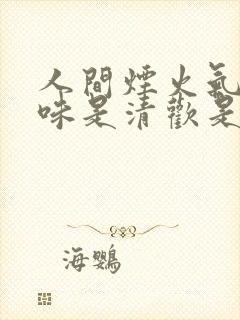 人間煙火氣
味是清歡是
海鸚